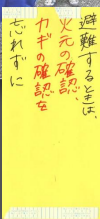 避難するときは、
火元の確認、
カギの確認を
忘れずに